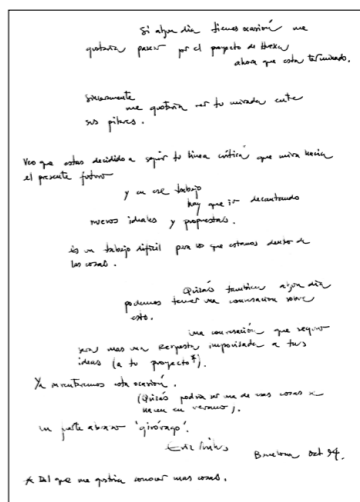 Si algun día tienes ocasión me
gustaría pasear por el proyecto de
ahora que esta terminado.
sinceramente
me gustaría ver tu mirada ante
sus pilares.
Veo que estas decidido a seguir tu linea crítica que mira hacia
el presente futuro
y en ese trabajo
hay que ir decantando
nuevos ideales y propuestas.
es un trabajo difícil para los que estamos dentro de
las cosas.
Quizás tambien algun día
podemos tener una conversación sobre
esto.
una conversación que seguro
sera mas una respuesta improvisada a tus
ideas (a tu proyecto*).
Ya encontraremos esta ocasión.
(Quizás podria ser una de esas cosas
hacen en verano).
un fuerte abrazo
Barcelona oct 94.
* Del que me gustaria conocer mas cosas.